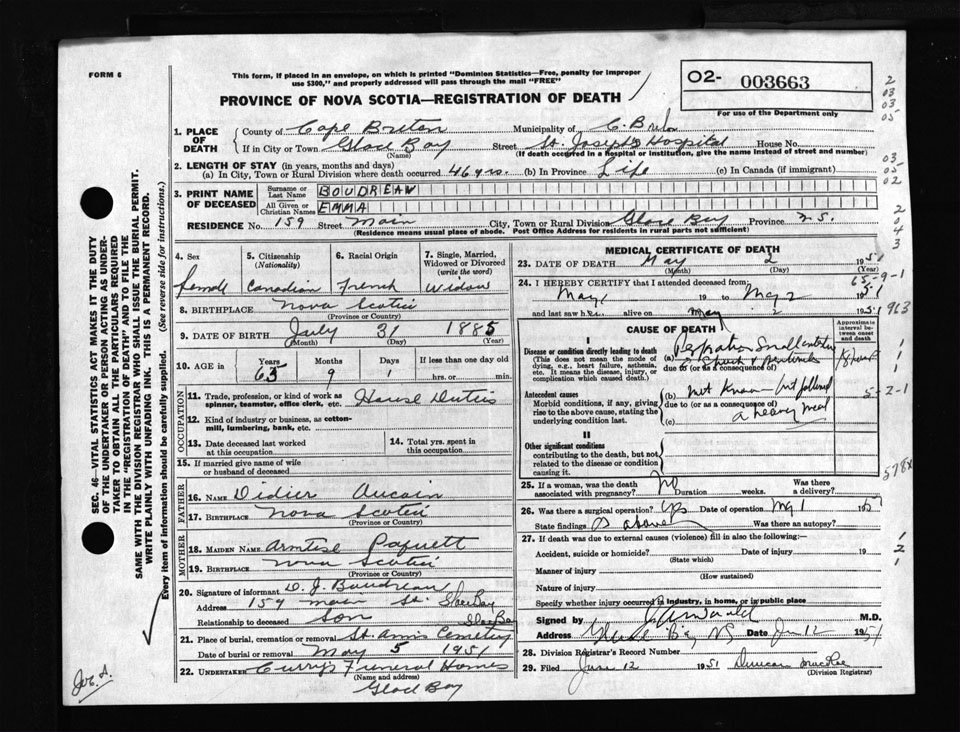 FORM 6
This form, if placed in an envelope, on which is printed "Dominion Statistics—Free, penalty for improper
use $300," and properly addressed will pass through the mail "FREE"
PROVINCE OF NOVA SCOTIA—REGISTRATION OF DEATH
O2- 003663
For use of the Department only
1. PLACE OF DEATH
County of Cape Breton Municipality of C. Breton
If in City or Town Glace Bay Street St. Joseph's Hospital House No.
(Name) (If death occurred in a hospital or institution, give the name instead of street and number)
2. LENGTH OF STAY (in years, months and days)
(a) In City, Town or Rural Division where death occurred 46 yrs. (b) In Province Life (c) In Canada (if immigrant)
3. PRINT NAME OF DECEASED
Surname or Last Name BOUDREAU
All Given or Christian Names EMMA
RESIDENCE No. 159 Street Main City, Town or Rural Division Glace Bay Province N.S.
(Residence means usual place of abode. Post Office Address for residents in rural parts not sufficient)
4. Sex Female
5. Citizenship (Nationality) Canadian
6. Racial Origin French
7. Single, Married, Widowed or Divorced (write the word) Widow
8. BIRTHPLACE Nova Scotia
(Province or Country)
9. DATE OF BIRTH July 31 1885
(Month) (Day) (Year)
10. AGE in Years 65 Months 9 Days 1 If less than one day old
hrs. or min.
OCCUPATION
11. Trade, profession, or kind of work as spinner, teamster, office clerk, etc. House Duties
12. Kind of industry or business, as cotton-mill, lumbering, bank, etc.
13. Date deceased last worked at this occupation
14. Total yrs. spent in this occupation
15. If married give name of wife or husband of deceased
FATHER
16. NAME Didier Aucoin
17. BIRTHPLACE Nova Scotia
(Province or Country)
MOTHER
18. MAIDEN NAME Paquett
19. BIRTHPLACE Nova Scotia
(Province or Country)
20. Signature of informant D. J. Boudreau
Address 159 Main St. Glace Bay
Relationship to deceased Son Glace Bay
21. Place of burial, cremation or removal St. Ann's Cemetery
Date of burial or removal May 5 1951
22. UNDERTAKER Curry's Funeral Homes
(Name and address)
Glace Bay
MEDICAL CERTIFICATE OF DEATH
23. DATE OF DEATH May 2 1951
(Month) (Day) (Year)
24. I HEREBY CERTIFY that I attended deceased from
May 1 19 to May 2 1951
and last saw her alive on May 2 1951
CAUSE OF DEATH
Approximate interval between onset and death
I
Disease or condition directly leading to death
(This does not mean the mode of dying, e.g., heart failure, asthenia, etc. It means the disease, injury, or complication which caused death.)
(a) Perforation Small
due to (or as a consequence of)
Antecedent causes
Morbid conditions, if any, giving rise to the above cause, stating the underlying condition last.
(b) Not Known – but followed
due to (or as a consequence of)
(c) a heavy meal
II
Other significant conditions
contributing to the death, but not related to the disease or condition causing it.
25. If a woman, was the death associated with pregnancy? No Duration weeks. Was there a delivery?
26. Was there a surgical operation? Yes Date of operation May 1 1951
State findings as above Was there an autopsy?
27. If death was due to external causes (violence) fill in also the following:—
Accident, suicide or homicide? Date of injury 19
(State which)
Manner of injury
(How sustained)
Nature of injury
Specify whether injury occurred in industry, in home, or in public place
Signed by M.D.
Address Glace Bay NS Date Jun 12 1951
28. Division Registrar's Record Number
29. Filed June 12 1951 Duncan MacRae
(Division Registrar)
SEC. 46—VITAL STATISTICS ACT MAKES IT THE DUTY
OF THE UNDERTAKER OR PERSON ACTING AS UNDER-
TAKER TO OBTAIN ALL THE PARTICULARS REQUIRED
IN THE "REGISTRATION OF DEATH" AND TO FILE THE
SAME WITH THE DIVISION REGISTRAR WHO SHALL ISSUE THE BURIAL PERMIT.
WRITE PLAINLY WITH UNFADING INK. THIS IS A PERMANENT RECORD.
Every item of information should be carefully supplied. (See reverse side for instructions.)
2
03
03-
05
03-
05-
02
2
0
4
3
65-9-1
51
963
5-2-1
578x
1
2
1